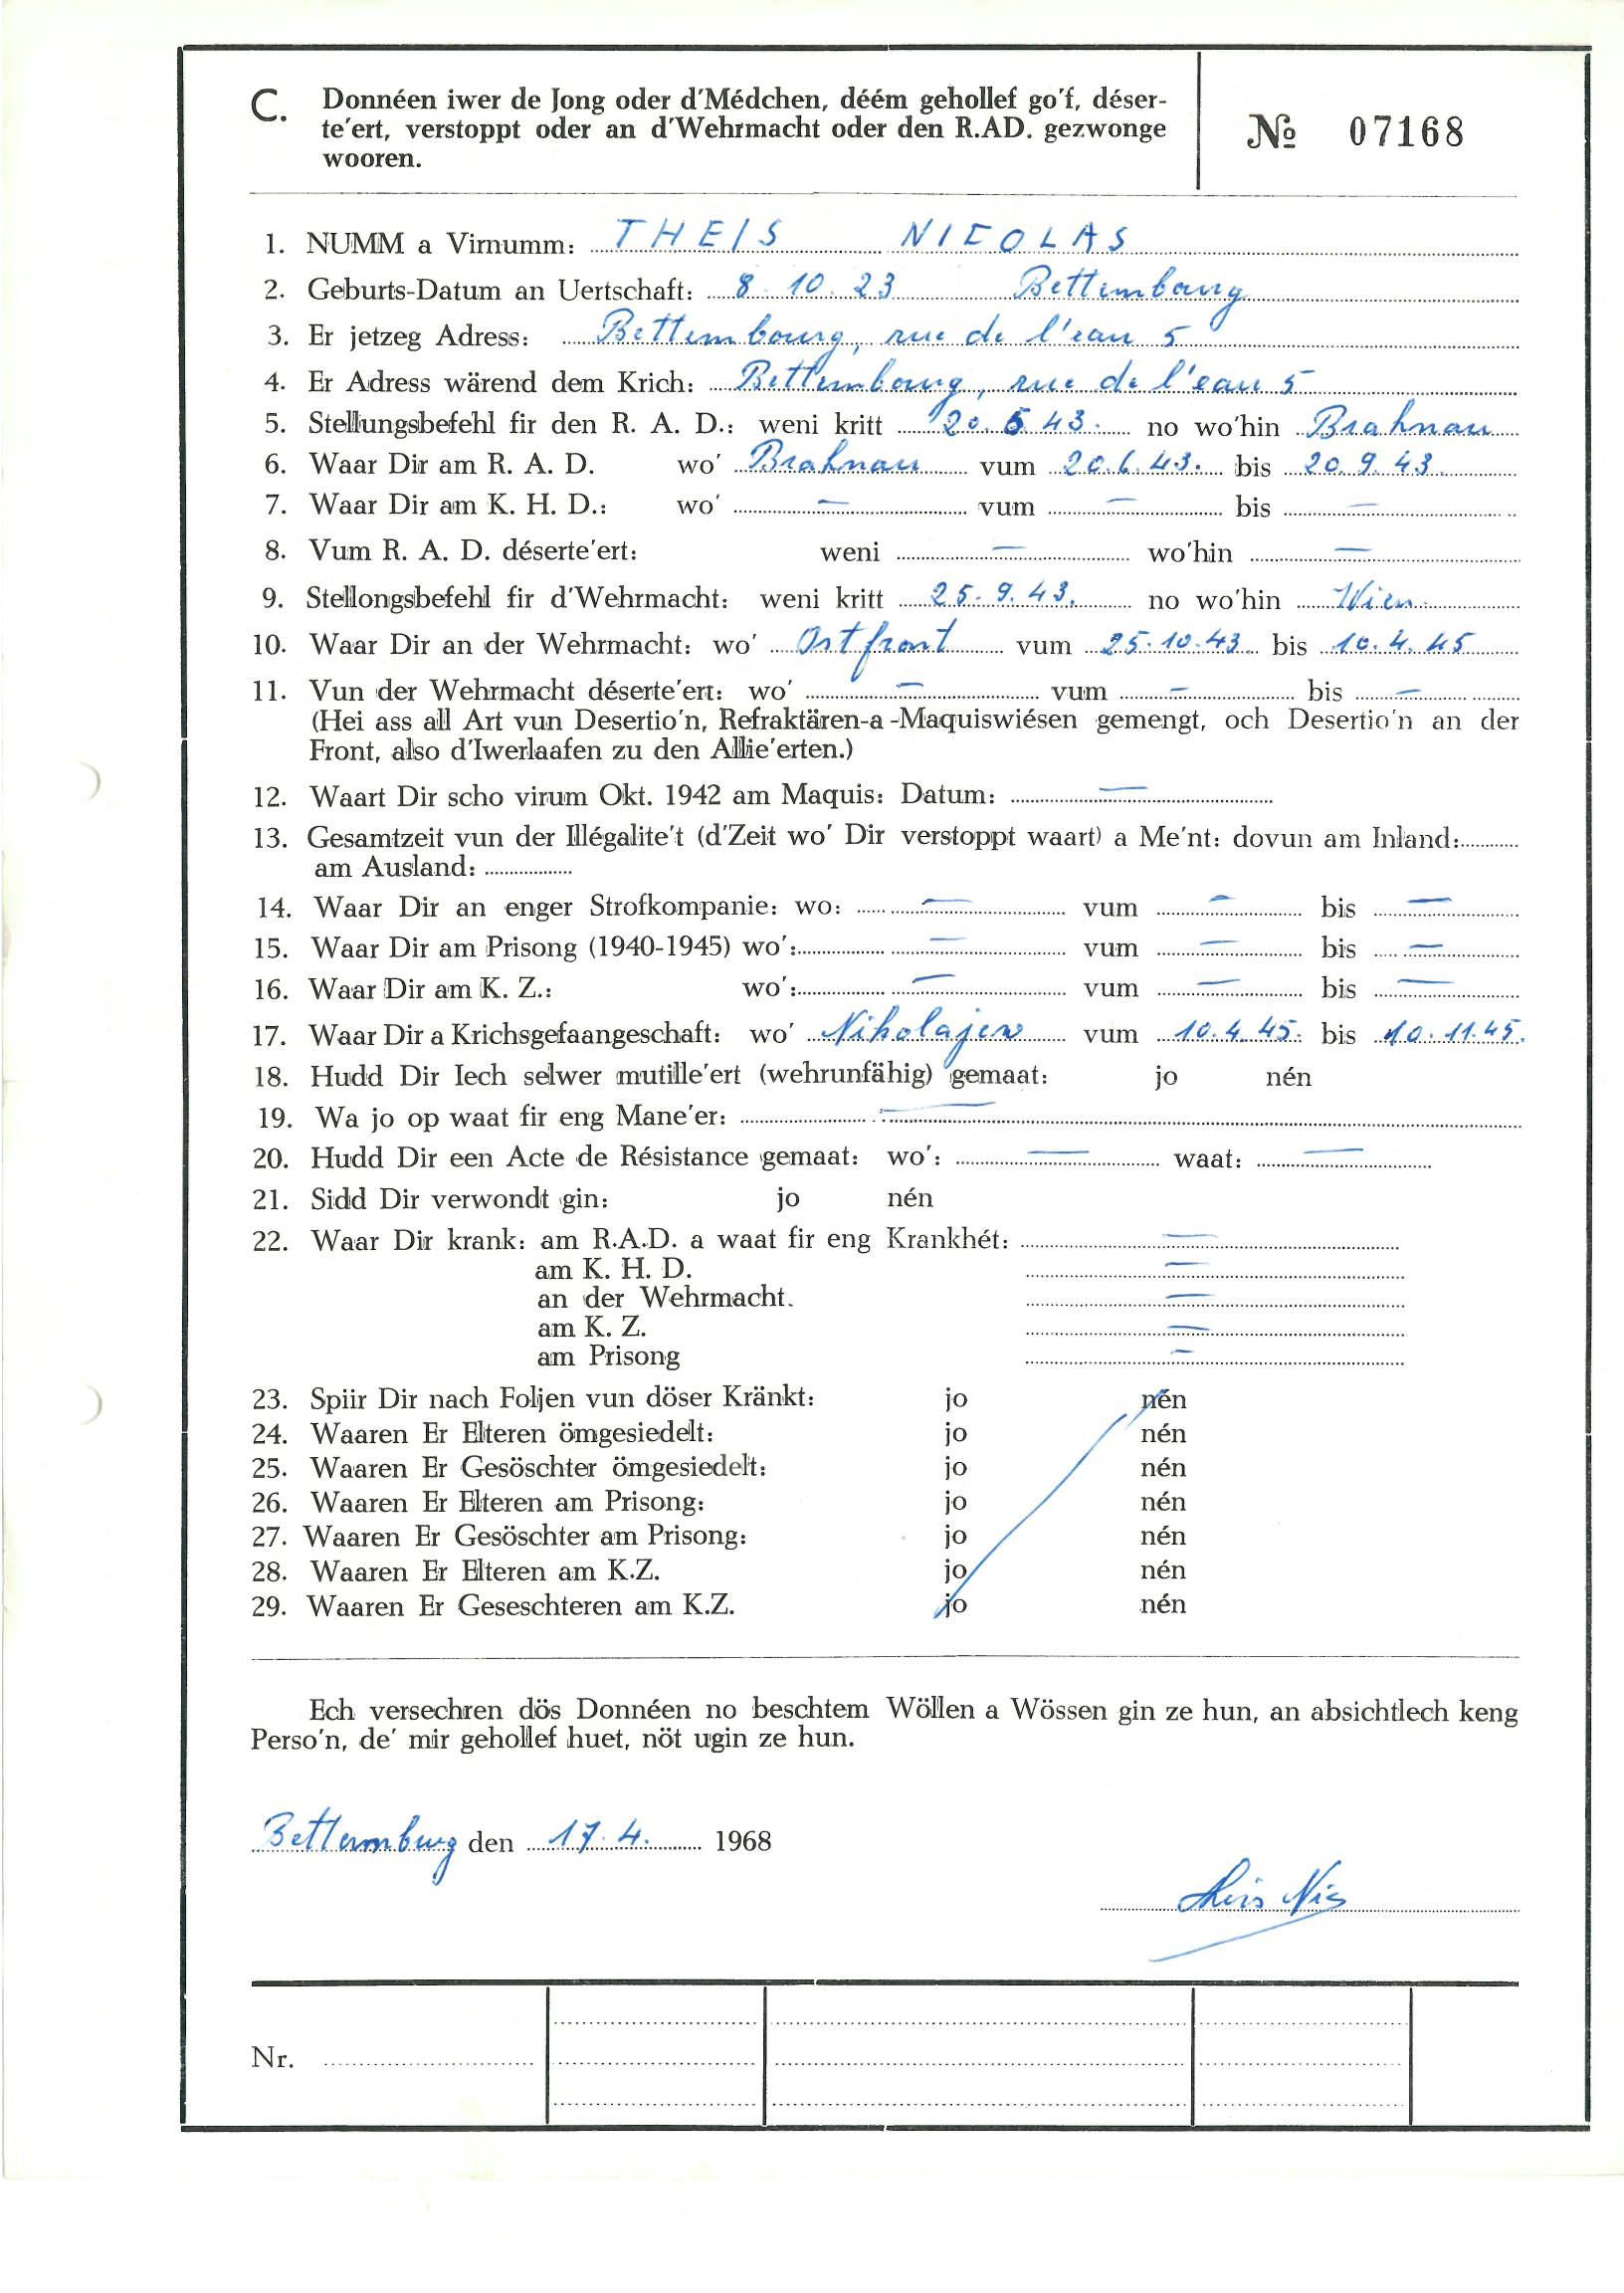 C. Donnéen iwer de Jong oder d'Médchen, déém gehollef go'f, déser-
te'ert, verstoppt oder an d'Wehrmacht oder den R.AD. gezwonge
wooren.
№ 07168
1. NUMM a Virnumm: THEIS NICOLAS
2. Geburts-Datum an Uertschaft: 8.10.23 Bettembourg
3. Er jetzeg Adress: Bettembourg, rue de l'eau 5
4. Er Adress wärend dem Krich: Bettembourg, rue de l'eau 5
5. Stellungsbefehl fir den R. A. D.: weni kritt 20.5.43. no wo'hin Brahnau
6. Waar Dir am R. A. D. wo' Brahnau vum 20.6.43. bis 20.9.43.
7. Waar Dir am K. H. D.: wo' — vum — bis —
8. Vum R. A. D. déserte'ert: weni — wo'hin —
9. Stellongsbefehl fir d'Wehrmacht: weni kritt 25.9.43. no wo'hin Wien
10. Waar Dir an der Wehrmacht: wo' Ostfront vum 25.10.43. bis 10.4.45
11. Vun der Wehrmacht déserte'ert: wo' — vum — bis —
(Hei ass all Art vun Desertio'n, Refraktären-a-Maquiswiésen gemengt, och Desertio'n an der
Front, also d'Iwerlaafen zu den Allie'erten.)
12. Waart Dir scho virum Okt. 1942 am Maquis: Datum: —
13. Gesamtzeit vun der Illégalite't (d'Zeit wo' Dir verstoppt waart) a Me'nt: dovun am Inland:
am Ausland:
14. Waar Dir an enger Strofkompanie: wo: — vum — bis —
15. Waar Dir am Prisong (1940-1945) wo': — vum — bis —
16. Waar Dir am K. Z.: wo': — vum — bis —
17. Waar Dir a Krichsgefaangeschaft: wo' Nikolajew vum 10.4.45. bis 10.11.45.
18. Hudd Dir Iech selwer mutille'ert (wehrunfähig) gemaat: jo nén
19. Wa jo op waat fir eng Mane'er: —
20. Hudd Dir een Acte de Résistance gemaat: wo': — waat: —
21. Sidd Dir verwondt gin: jo nén
22. Waar Dir krank: am R.A.D. a waat fir eng Krankhét: —
am K. H. D. —
an der Wehrmacht. —
am K. Z. —
am Prisong —
23. Spiir Dir nach Foljen vun döser Kränkt: jo nén
24. Waaren Er Elteren ömgesiedelt: jo nén
25. Waaren Er Gesöschter ömgesiedelt: jo nén
26. Waaren Er Elteren am Prisong: jo nén
27. Waaren Er Gesöschter am Prisong: jo nén
28. Waaren Er Elteren am K.Z. jo nén
29. Waaren Er Geseschteren am K.Z. jo nén
Ech versechren dös Donnéen no beschtem Wöllen a Wössen gin ze hun, an absichtlech keng
Perso'n, de' mir gehollef huet, nöt ugin ze hun.
Bettemburg den 17.4. 1968
Theis Nic
Nr.